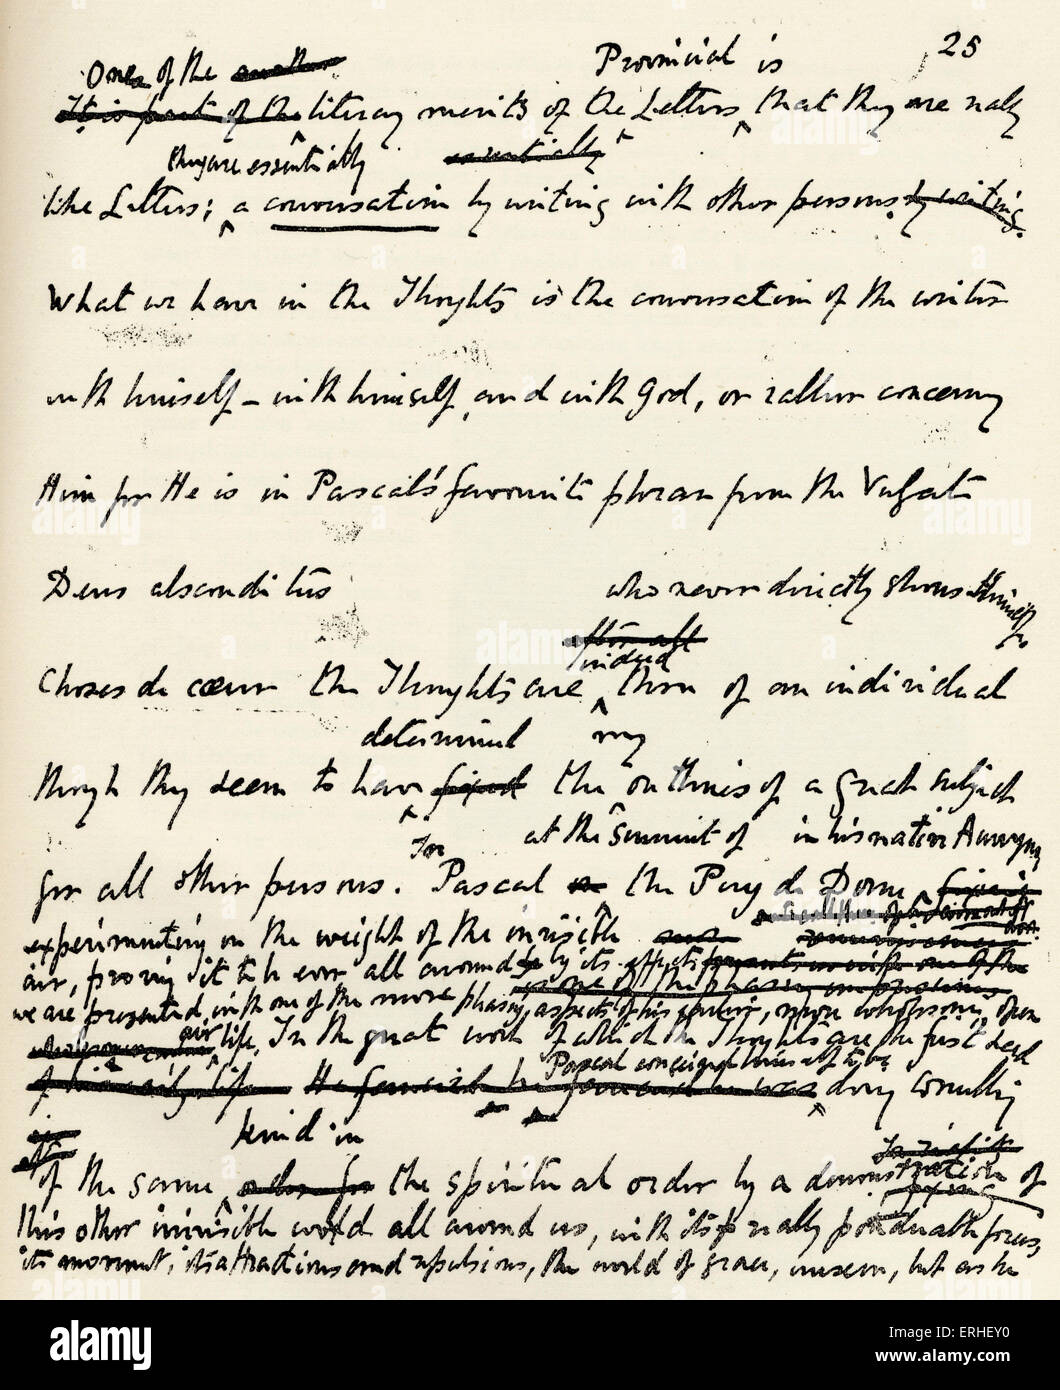 25
One of the Provincial is
It is part of the literary merits of the Letters that they are really
they are essentially essentially
like Letters; a conversation by writing with other persons by writing.
What we have in the Thoughts is the conversation of the writer
with himself – with himself, and with God, or rather concerning
Him for He is in Pascal's favourite phrase from the Vulgate
Deus absconditus who never directly shows Himself
after all
indeed
Choses de cœur the Thoughts are those of an individual
determined my
though they seem to have fixed the outlines of a great subject
for at the summit of in his native Auvergne
for all other persons. Pascal the Puy de Dome
experimenting on the weight of the invisible
air, proving it to be ever all around by its effects
we are presented with one of the more pleasing aspects of his earlier, more wholesome, open
air life. In the great work of which the Thoughts are the first
Pascal conceived himself to be
He fancied he was doing something
kind in
of the same the spiritual order by a demonstration of
this other invisible world all around us, with its really ponderable forces,
its movement, its attractions and repulsions, the world of grace, unseen, but as he
alamy
Image ID: ERHEY0
www.alamy.com